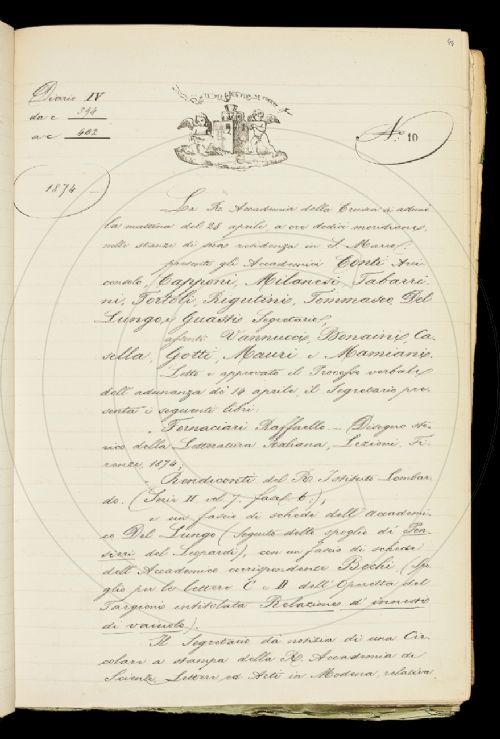 Diario IV
da c 394
a c 402
N.º 10
1874
La R. Accademia della Crusca si adunò
la mattina del 28 aprile, a ore dodici meridiane,
nelle stanze di sua residenza in S. Marco:
presenti gli Accademici Conti Arci-
consolo, Capponi, Milanesi, Tabarri-
ni, Tortoli, Rigutini, Tommaseo, Del
Lungo, e Guasti Segretario;
assenti Vannucci, Bonaini, Ca-
sella, Gotti, Mauri e Mamiani.
Letto e approvato il Processo verbale
dell'adunanza di 14 aprile, il Segretario pre-
senta i seguenti libri:
Fornaciari Raffaello – Disegno sto-
rico della Letteratura Italiana, Lezioni. Fi-
renze, 1874;
Rendiconti del R. Istituto Lombar-
do. (Serie II vol. 7. fasc. 6.);
e un fascio di schede dell'Accademi-
co Del Lungo (seguito dello spoglio di Pen-
sieri del Leopardi), con un fascio di schede
dell'Accademico corrispondente Bechi (Spo-
glio per le lettere C e D dell'Operetta del
Targioni intitolata Relazioni d'innesti
di vaiuolo).
Il Segretario dà notizia di una Cir-
colare a stampa della R. Accademia di
Scienze Lettere ed Arti in Modena, relativa